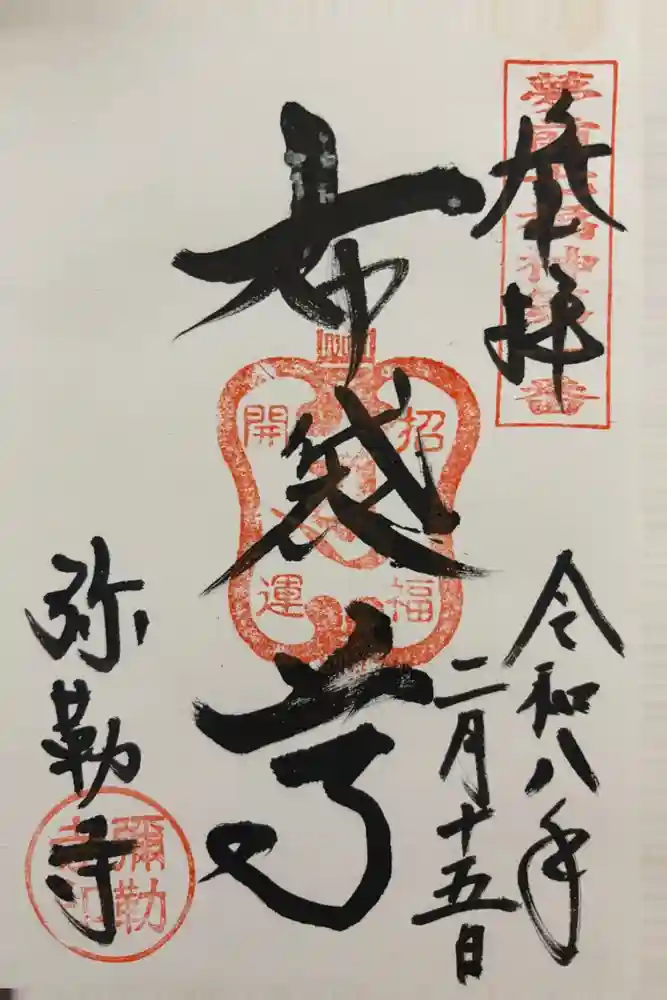 奉拝
令和八年
二月十五日
布袋尊
招福
開運
弥勒寺
彌勒